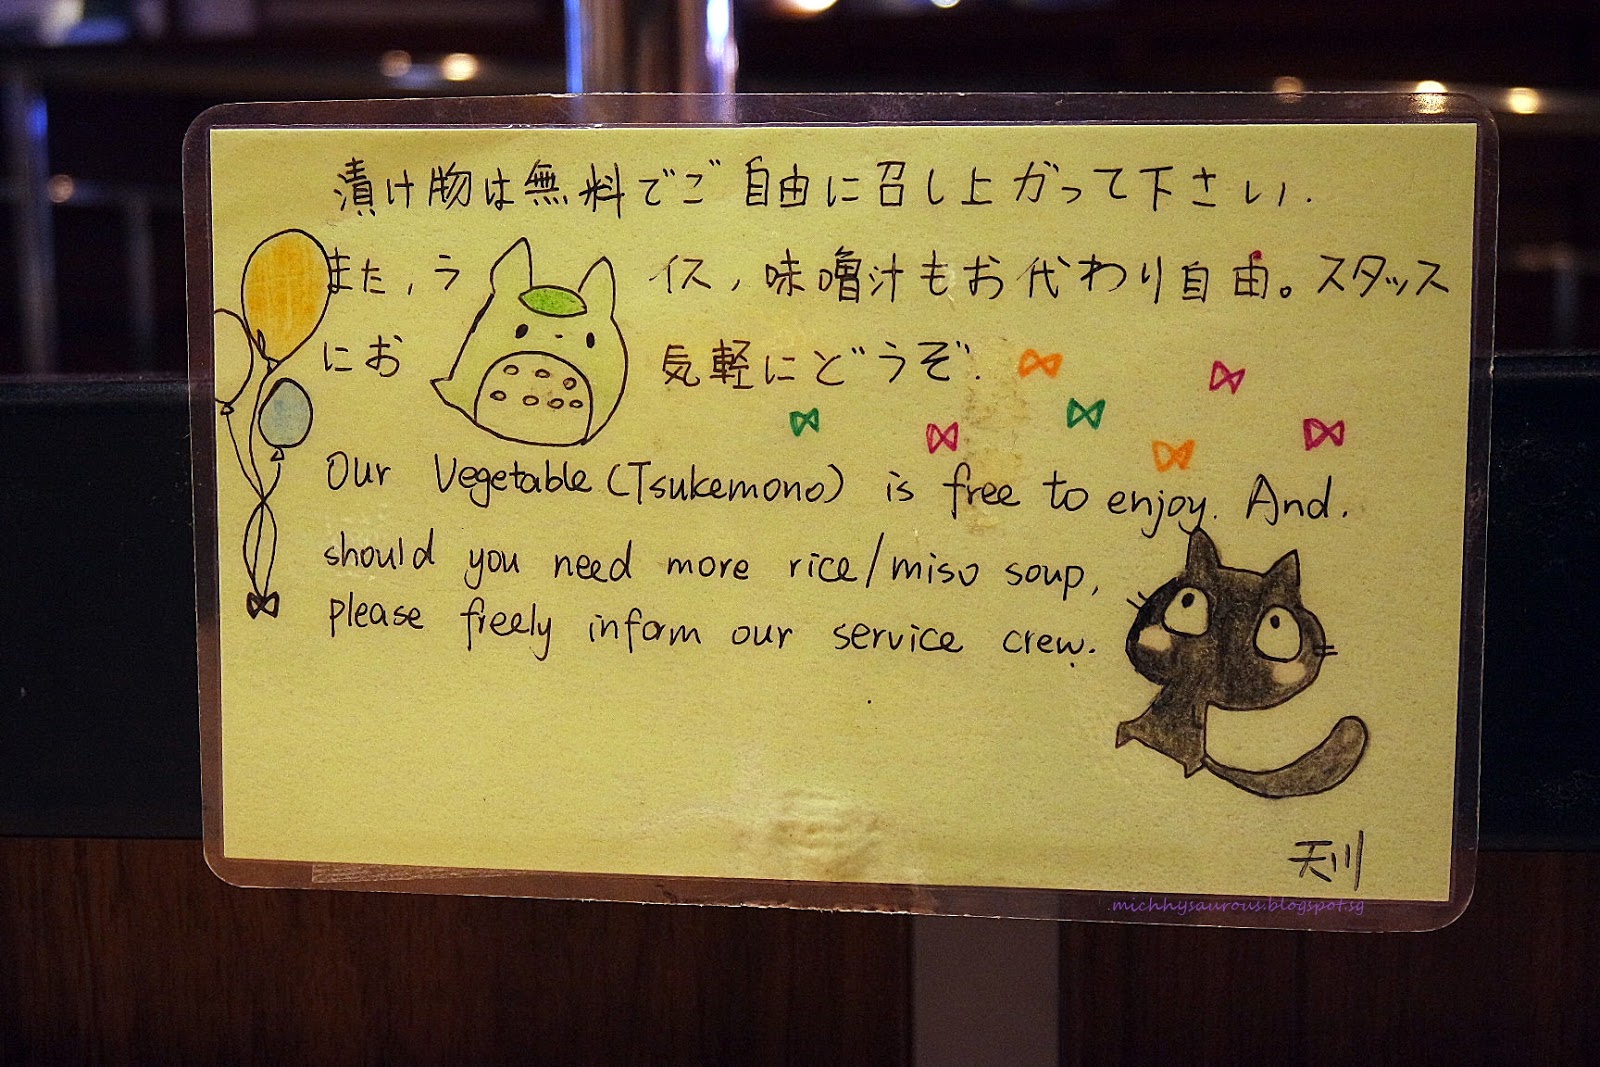 漬け物は無料でご自由に召し上がって下さい.
また,ライス,味噌汁もお代わり自由。スタッス
にお気軽にどうぞ.
Our Vegetable (Tsukemono) is free to enjoy. And.
should you need more rice/miso soup,
please freely inform our service crew.
天川
michhysaurous.blogspot.sg